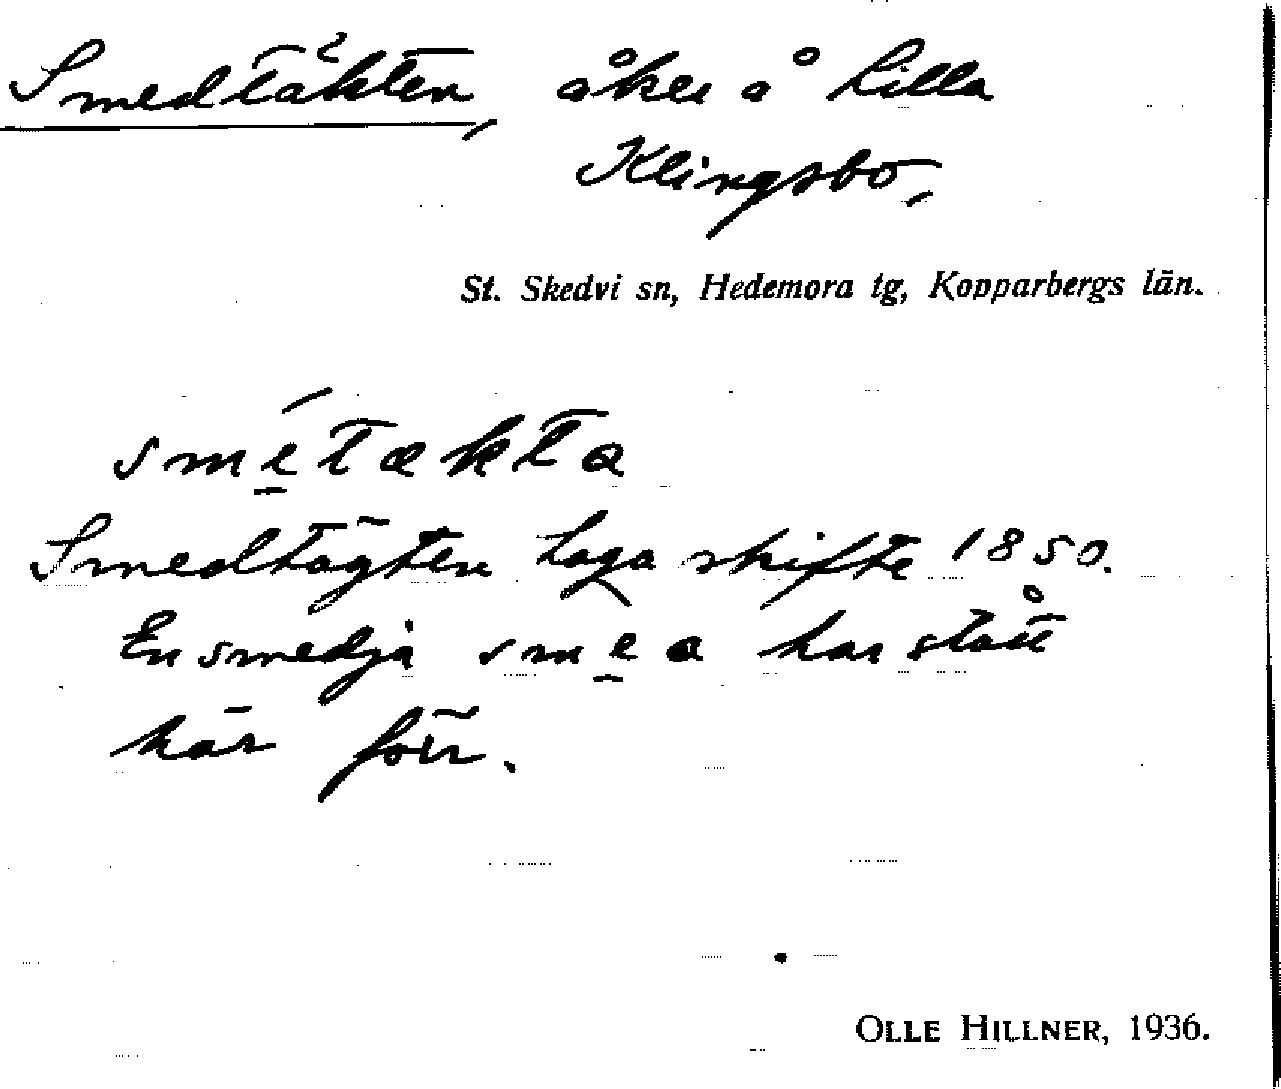 Smedtäkten, åker å Lilla
Klingsbo,
St. Skedvi sn, Hedemora tg, Kopparbergs län.
smetækta
Smedtägten Laga skifte 1850.
En smedja smea har stått
här förr.
OLLE HILLNER, 1936.